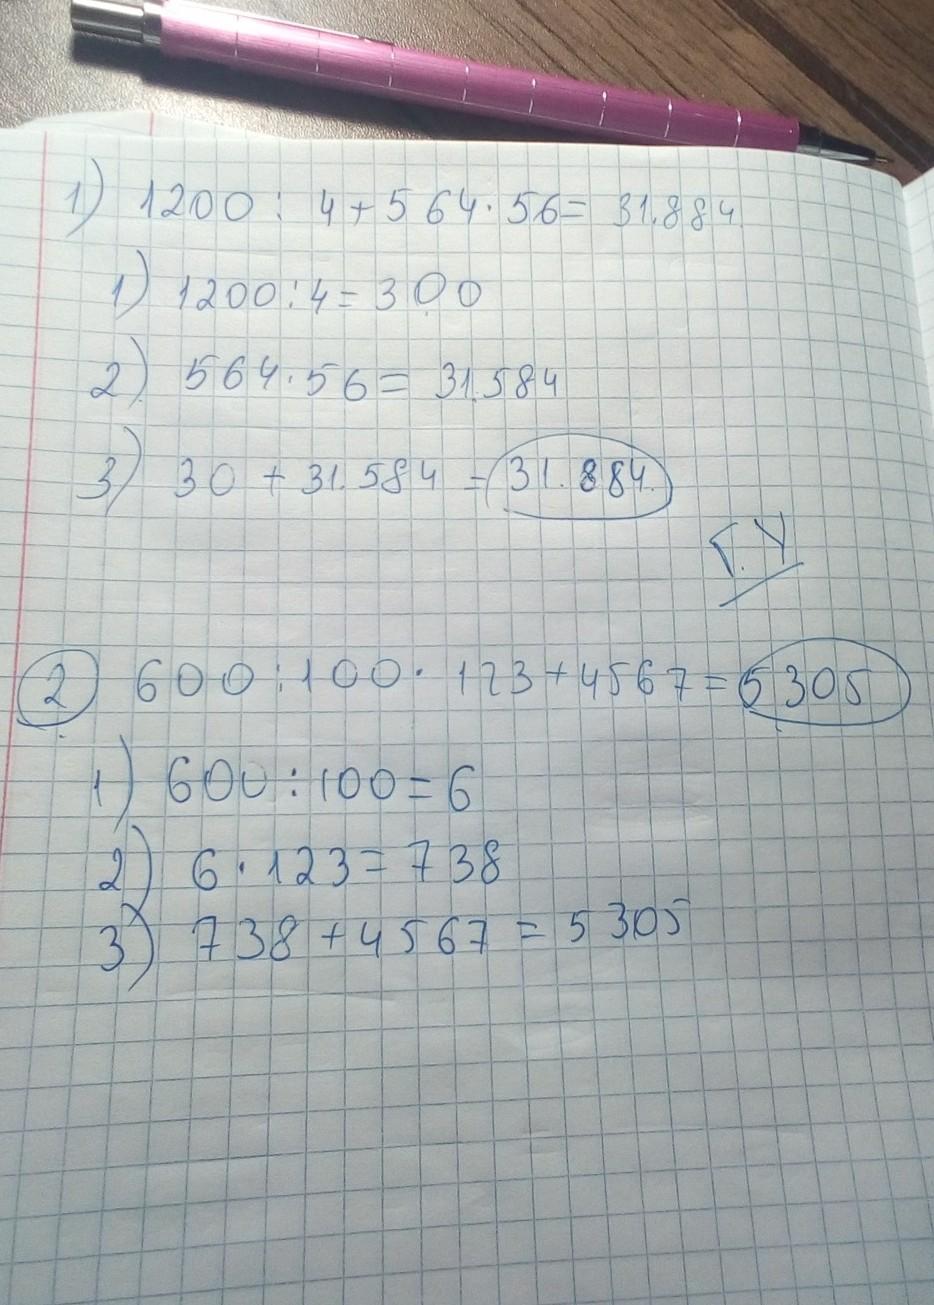 1) 1200 : 4 + 564 · 56 = 31.884
1) 1200 : 4 = 300
2) 564 · 56 = 31.584
3) 30 + 31.584 = 31.884.
Г.У
2 600 : 100 · 123 + 4567 = 5305
1) 600 : 100 = 6
2) 6 · 123 = 738
3) 738 + 4567 = 5305